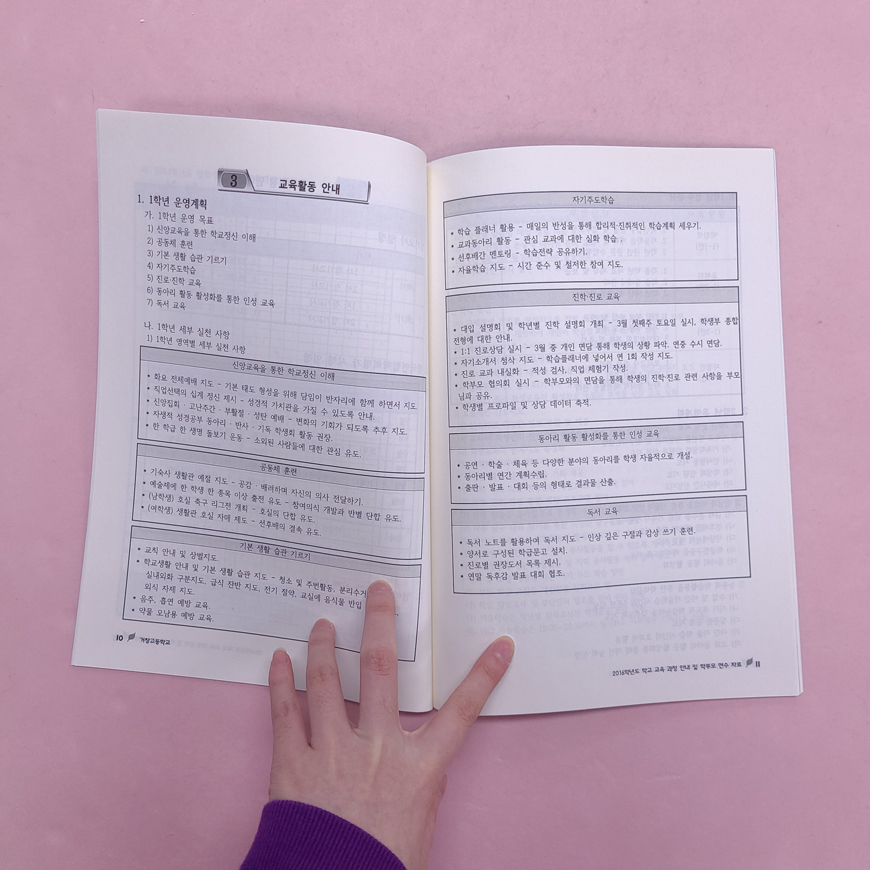 3 교육활동 안내
1. 1학년 운영계획
가. 1학년 운영 목표
1) 신앙교육을 통한 학교정신 이해
2) 공동체 훈련
3) 기본 생활 습관 기르기
4) 자기주도학습
5) 진로·진학 교육
6) 동아리 활동 활성화를 통한 인성 교육
7) 독서 교육
나. 1학년 세부 실천 사항
1) 1학년 영역별 세부 실천 사항
신앙교육을 통한 학교정신 이해
• 화요 전체예배 지도 - 기본 태도 형성을 위해 담임이 반자리에 함께 하면서 지도.
• 직업선택의 십계 정신 제시 - 성경적 가치관을 가질 수 있도록 안내.
• 신앙집회 · 고난주간 · 부활절 · 성탄 예배 - 변화의 기회가 되도록 추후 지도.
• 자생적 성경공부 동아리 · 반사 · 기독 학생회 활동 권장.
• 한 학급 한 생명 돌보기 운동 - 소외된 사람들에 대한 관심 유도.
공동체 훈련
• 기숙사 생활관 예절 지도 - 공감 · 배려하며 자신의 의사 전달하기.
• 예술제에 한 학생 한 종목 이상 출전 유도 - 참여의식 개발과 반별 단합 유도.
• (남학생) 호실 축구 리그전 개최 - 호실의 단합 유도.
• (여학생) 생활관 호실 자매 제도 - 선후배의 결속 유도.
기본 생활 습관 기르기
• 교칙 안내 및 상벌지도.
• 학교생활 안내 및 기본 생활 습관 지도 - 청소 및 주번활동, 분리수거
실내외화 구분지도, 급식 잔반 지도, 전기 절약, 교실에 음식물 반입
외식 자제 지도
• 음주, 흡연 예방 교육.
• 약물 오남용 예방 교육.
10 거창고등학교
자기주도학습
• 학습 플래너 활용 - 매일의 반성을 통해 합리적·진취적인 학습계획 세우기.
• 교과동아리 활동 - 관심 교과에 대한 심화 학습.
• 선후배간 멘토링 - 학습전략 공유하기.
• 자율학습 지도 - 시간 준수 및 철저한 참여 지도.
진학·진로 교육
• 대입 설명회 및 학년별 진학 설명회 개최 - 3월 첫째주 토요일 실시, 학생부 종합
전형에 대한 안내.
• 1:1 진로상담 실시 - 3월 중 개인 면담 통해 학생의 상황 파악. 연중 수시 면담.
• 자기소개서 첨삭 지도 - 학습플래너에 넣어서 연 1회 작성 지도.
• 진로 교과 내실화 - 적성 검사, 직업 체험기 작성.
• 학부모 협의회 실시 - 학부모와의 면담을 통해 학생의 진학·진로 관련 사항을 부모
님과 공유.
• 학생별 프로파일 및 상담 데이터 축적.
동아리 활동 활성화를 통한 인성 교육
• 공연 · 학술 · 체육 등 다양한 분야의 동아리를 학생 자율적으로 개설.
• 동아리별 연간 계획수립.
• 출판 · 발표 · 대회 등의 형태로 결과물 산출.
독서 교육
• 독서 노트를 활용하여 독서 지도 - 인상 깊은 구절과 감상 쓰기 훈련.
• 양서로 구성된 학급문고 설치.
• 진로별 권장도서 목록 제시.
• 연말 독후감 발표 대회 협조.
2016학년도 학교 교육 과정 안내 및 학부모 연수 자료 11